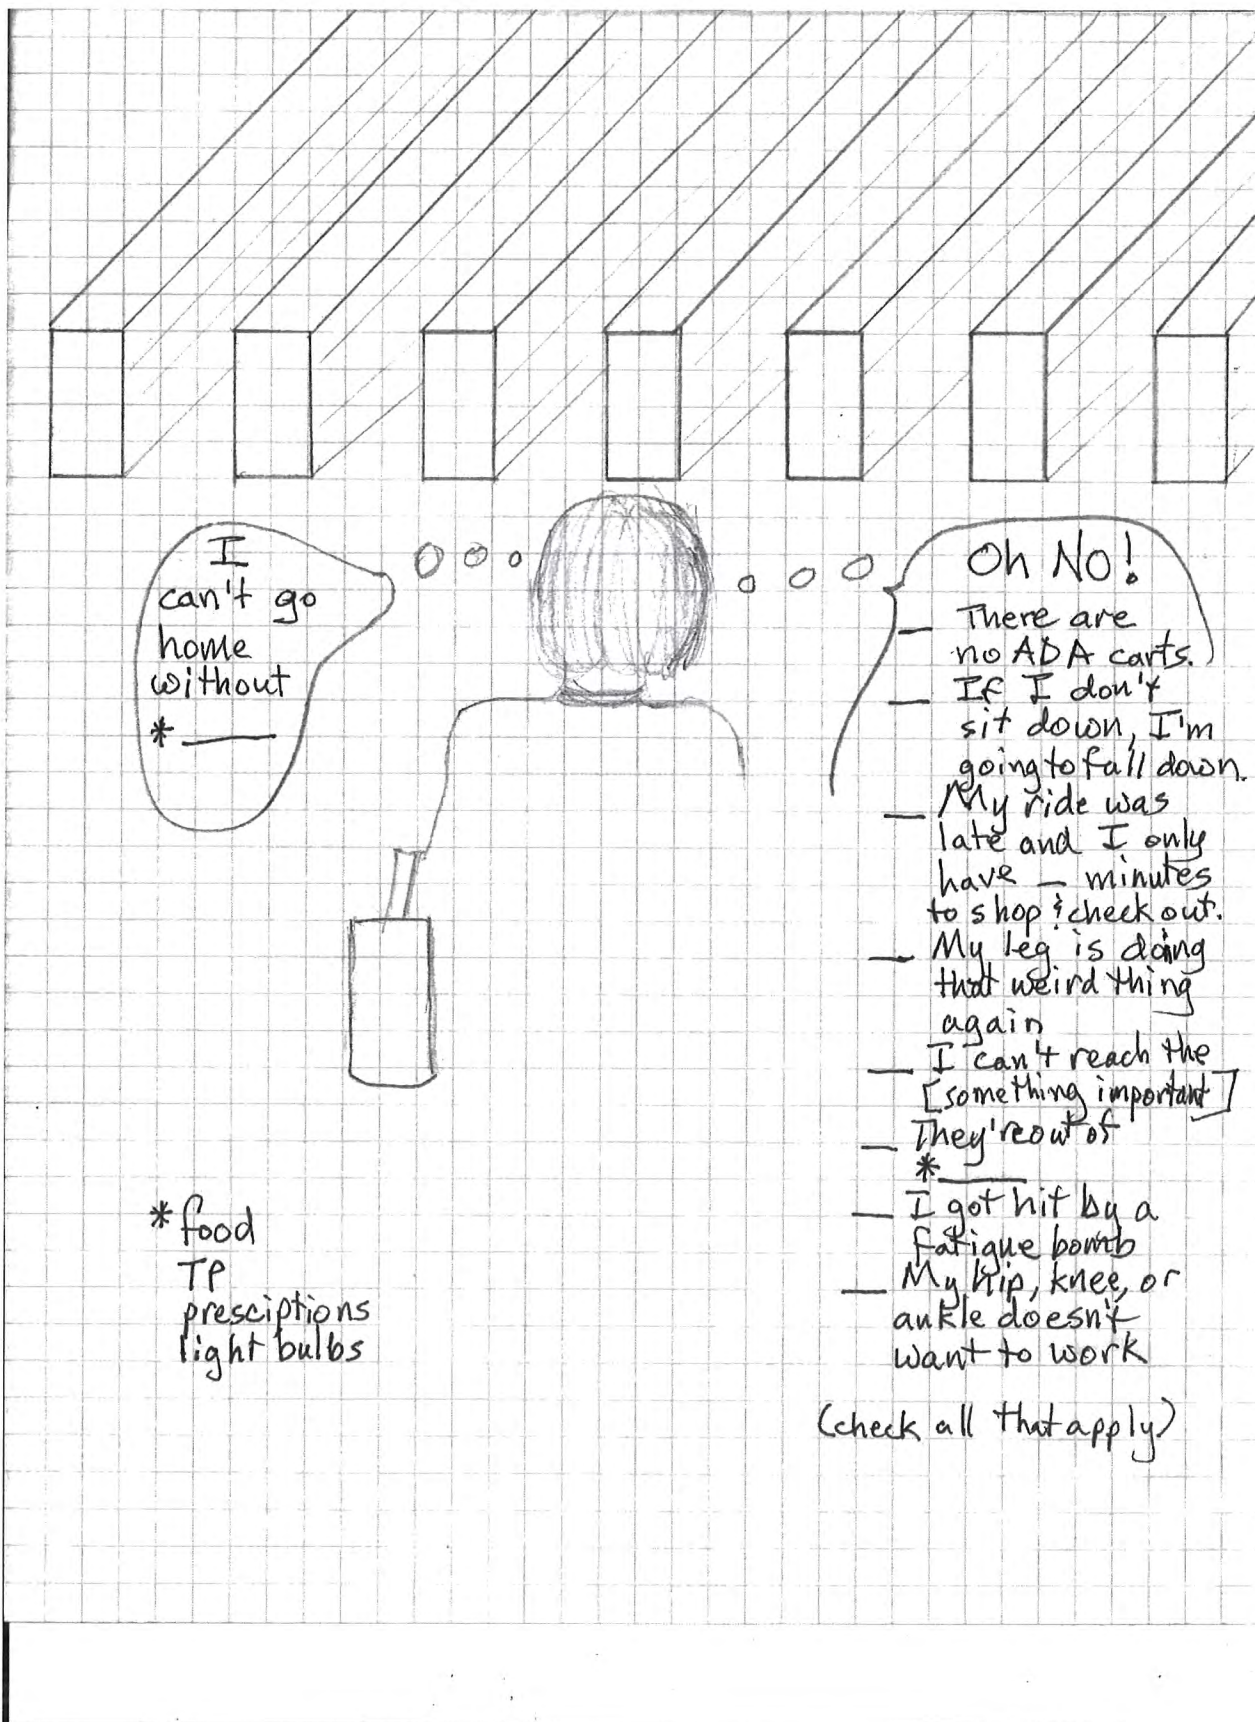 I
can't go
home
without
* ____
Oh No!
__ There are
no ADA carts.
__ If I don't
sit down, I'm
going to fall down.
__ My ride was
late and I only
have __ minutes
to shop & check out.
__ My leg is doing
that weird thing
again
__ I can't reach the
[something important]
__ They're out of
* ____
__ I got hit by a
fatigue bomb
__ My hip, knee, or
ankle doesn't
want to work
(check all that apply)
* food
TP
presciptions
light bulbs